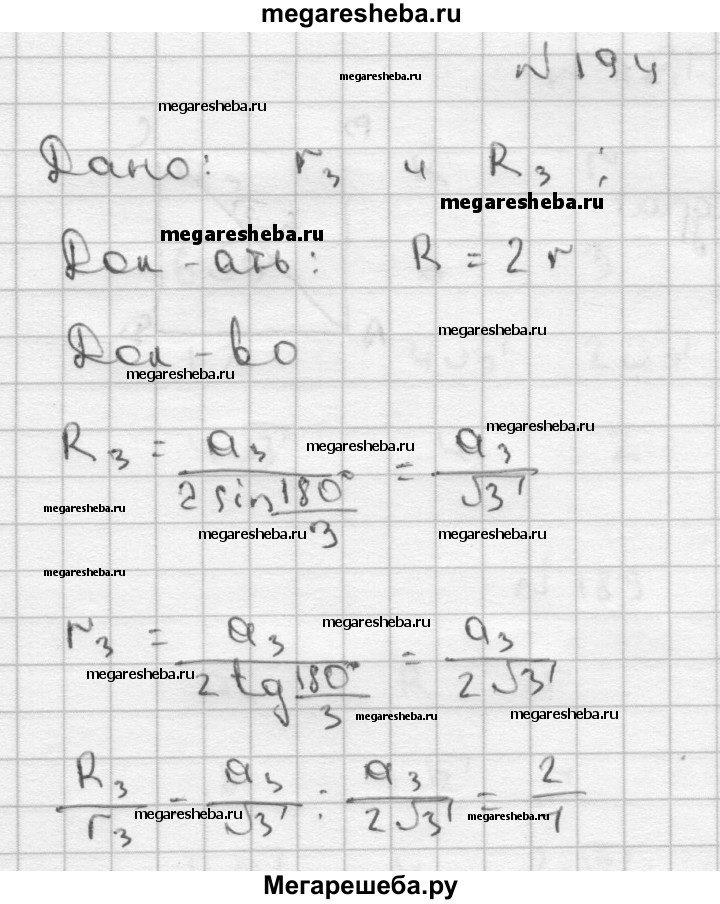 megaresheba.ru
N 194
megaresheba.ru
megaresheba.ru
Дано: r₃ и R₃ ;
megaresheba.ru
megaresheba.ru
Док-ать: R = 2 r
megaresheba.ru
Док-во
megaresheba.ru
megaresheba.ru
R₃ = a₃ / (2 sin 180° / 3) = a₃ / √3
megaresheba.ru
megaresheba.ru
megaresheba.ru
megaresheba.ru
megaresheba.ru
megaresheba.ru
r₃ = a₃ / (2 tg 180° / 3) = a₃ / (2 √3)
megaresheba.ru
megaresheba.ru
megaresheba.ru
R₃ / r₃ = a₃ / √3 : a₃ / (2 √3) = 2 / 1
megaresheba.ru
megaresheba.ru
Мегарешеба.ру